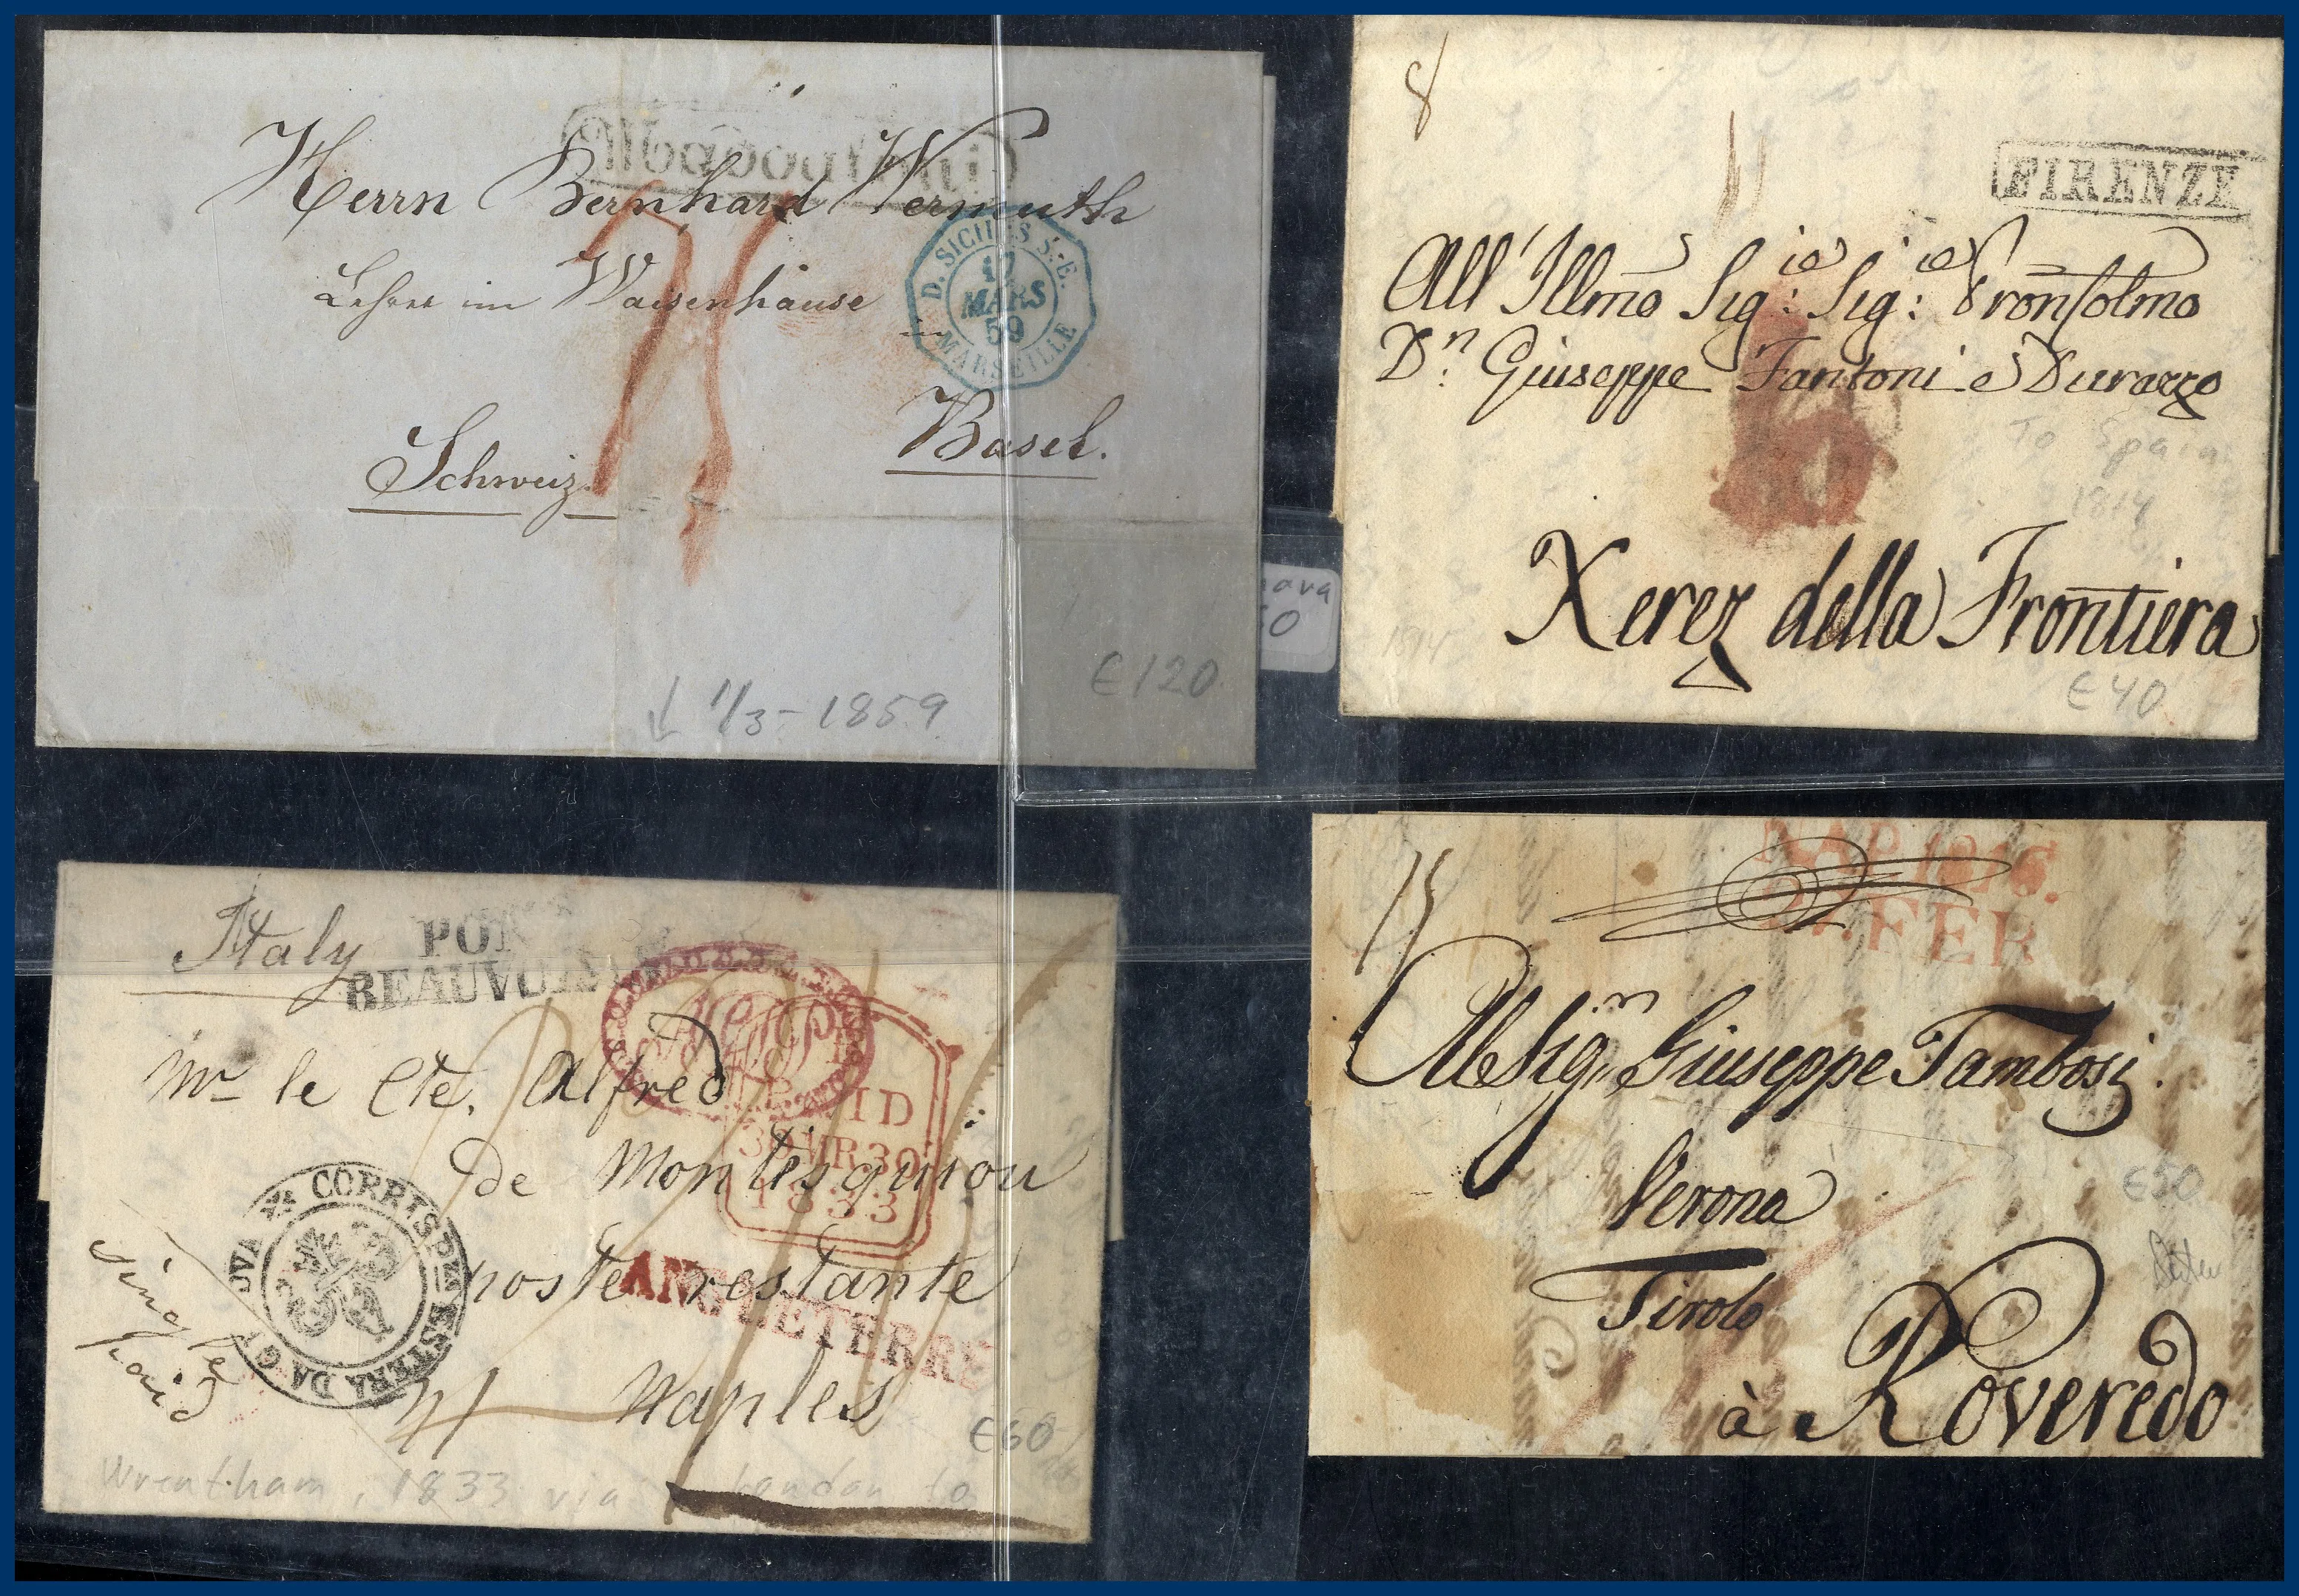 Herrn Bernhard Wermuth
Lehrer im Waisenhause
in
Basel.
Schweiz.
D. SICILES S.-E.
17
MARS
59
MARSEILLE
1/3 - 1859
€120
8
FIRENZE
All' Illmo Sig: Sig:
Dn: Giuseppe Fantoni e Durazzo
To Spain
1814
Xerez della Frontiera
1814
€40
Italy
BEAUVOISIN
PAID
30 MR 30
1833
Mr le Cte. Alfred
de Montesquiou
poste restante
ANGLETERRE
Naples
CORRISPZA ESTERA DA GENOVA
single
paid
€60
Wrentham, 1833 via London to
15
NAP. 1816.
FER
Al Sigr Giuseppe Tambosi
Verona
Tirolo
à Roveredo
€50